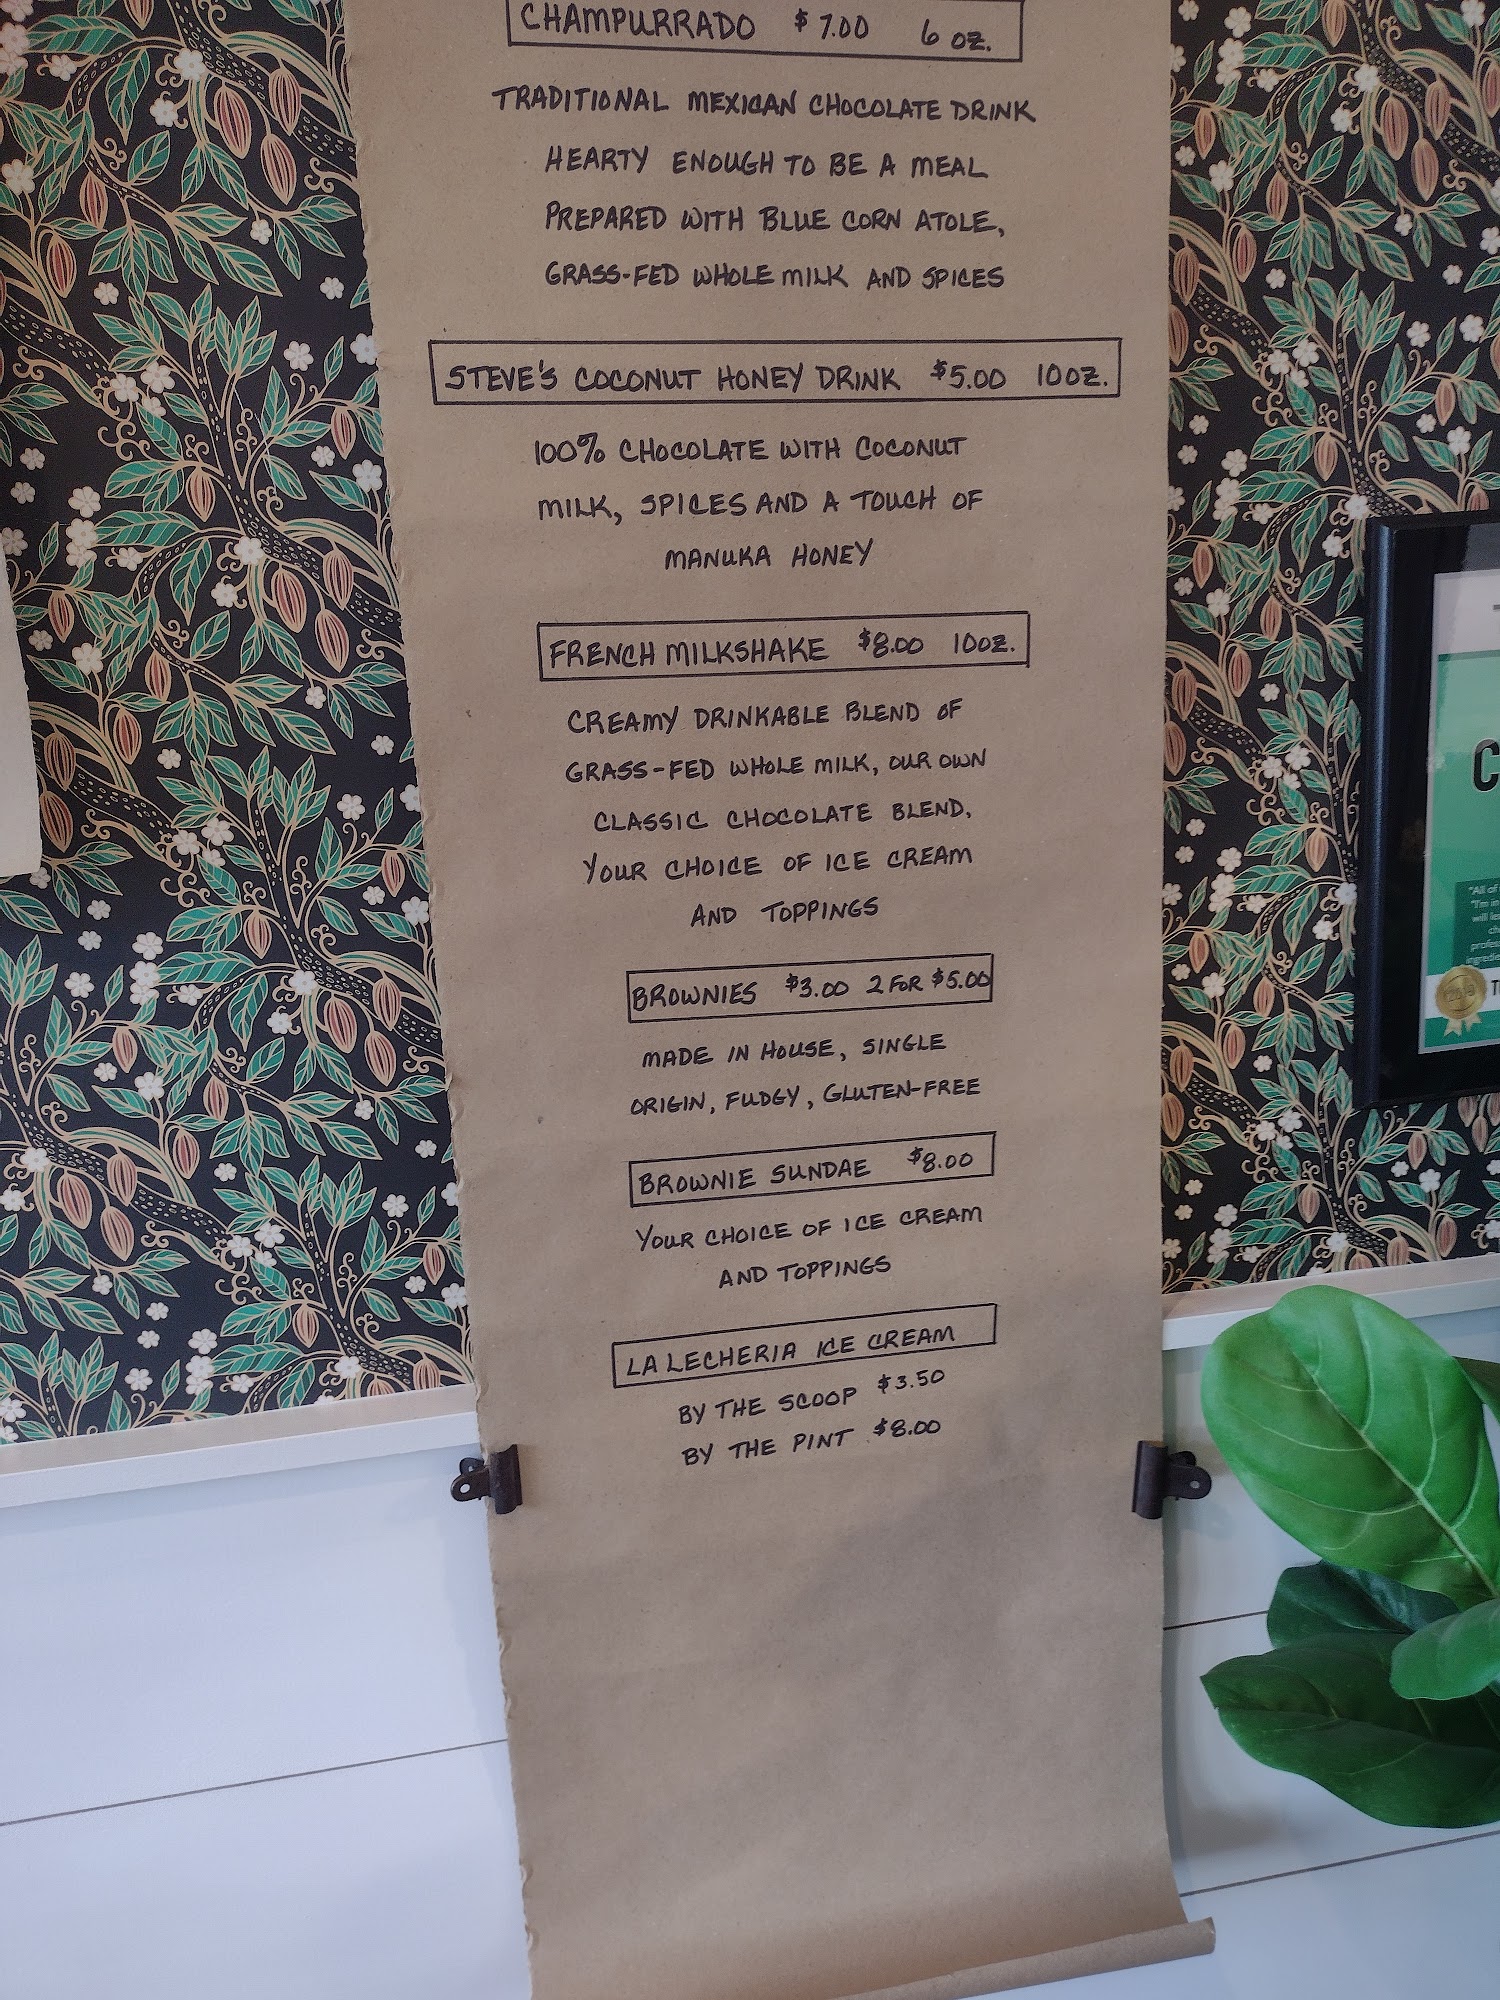 CHAMPURRADO $7.00 6 oz.
TRADITIONAL MEXICAN CHOCOLATE DRINK
HEARTY ENOUGH TO BE A MEAL
PREPARED WITH BLUE CORN ATOLE,
GRASS-FED WHOLE MILK AND SPICES
STEVE'S COCONUT HONEY DRINK $5.00 10oz.
100% CHOCOLATE WITH COCONUT
MILK, SPICES AND A TOUCH OF
MANUKA HONEY
FRENCH MILKSHAKE $8.00 10oz.
CREAMY DRINKABLE BLEND OF
GRASS-FED WHOLE MILK, OUR OWN
CLASSIC CHOCOLATE BLEND,
YOUR CHOICE OF ICE CREAM
AND TOPPINGS
BROWNIES $3.00 2 FOR $5.00
MADE IN HOUSE, SINGLE
ORIGIN, FUDGY, GLUTEN-FREE
BROWNIE SUNDAE $8.00
YOUR CHOICE OF ICE CREAM
AND TOPPINGS
LA LECHERIA ICE CREAM
BY THE SCOOP $3.50
BY THE PINT $8.00
"All of
"I'm in
will